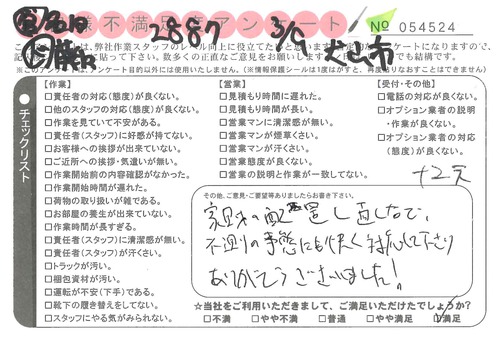 様不満足度アンケート
2887 3/9
№ 054524
このアンケートは、弊社作業スタッフのレベル向上に役立てたいと思います
数多くの正直なご意見をお願いします
※このアンケートは、アンケート目的以外には使用いたしません。(※情報保護シールは1度はがすと、再度貼りなおすことはできません)
チェックリスト
【作業】
□責任者の対応(態度)が良くない。
□他のスタッフの対応(態度)が良くない。
□作業を見ていて不安がある。
□責任者(スタッフ)に好感が持てない。
□お客様への挨拶が出来ていない。
□ご近所への挨拶・気遣いが無い。
□作業開始前の内容確認がなかった。
□作業開始時間が遅れた。
□荷物の取り扱いが雑である。
□お部屋の養生が出来ていない。
□作業時間が長すぎる。
□責任者(スタッフ)に清潔感が無い。
□責任者(スタッフ)が汗くさい。
□トラックが汚い。
□梱包資材が汚い。
□運転が不安(下手)である。
□靴下の履き替えをしてない。
□スタッフにやる気がみられない。
【営業】
□見積もり時間に遅れた。
□見積もり時間が長い。
□営業マンに清潔感が無い。
□営業マンが煙草くさい。
□営業マンが汗くさい。
□営業態度が良くない。
□営業の説明と作業が一致してない。
【受付・その他】
□電話の対応が良くない。
□オプション業者の説明
・作業が良くない。
□オプション業者の対応
(態度)が良くない。
その他、ご意見・ご要望等ありましたらお書き下さい。
家具の配置し直しなど、
不測の事態にも快く対応して下さり
ありがとうございました!
☆当社をご利用いただきまして、ご満足いただけたでしょうか?
□不満 □やや不満 □普通 □やや満足 □満足